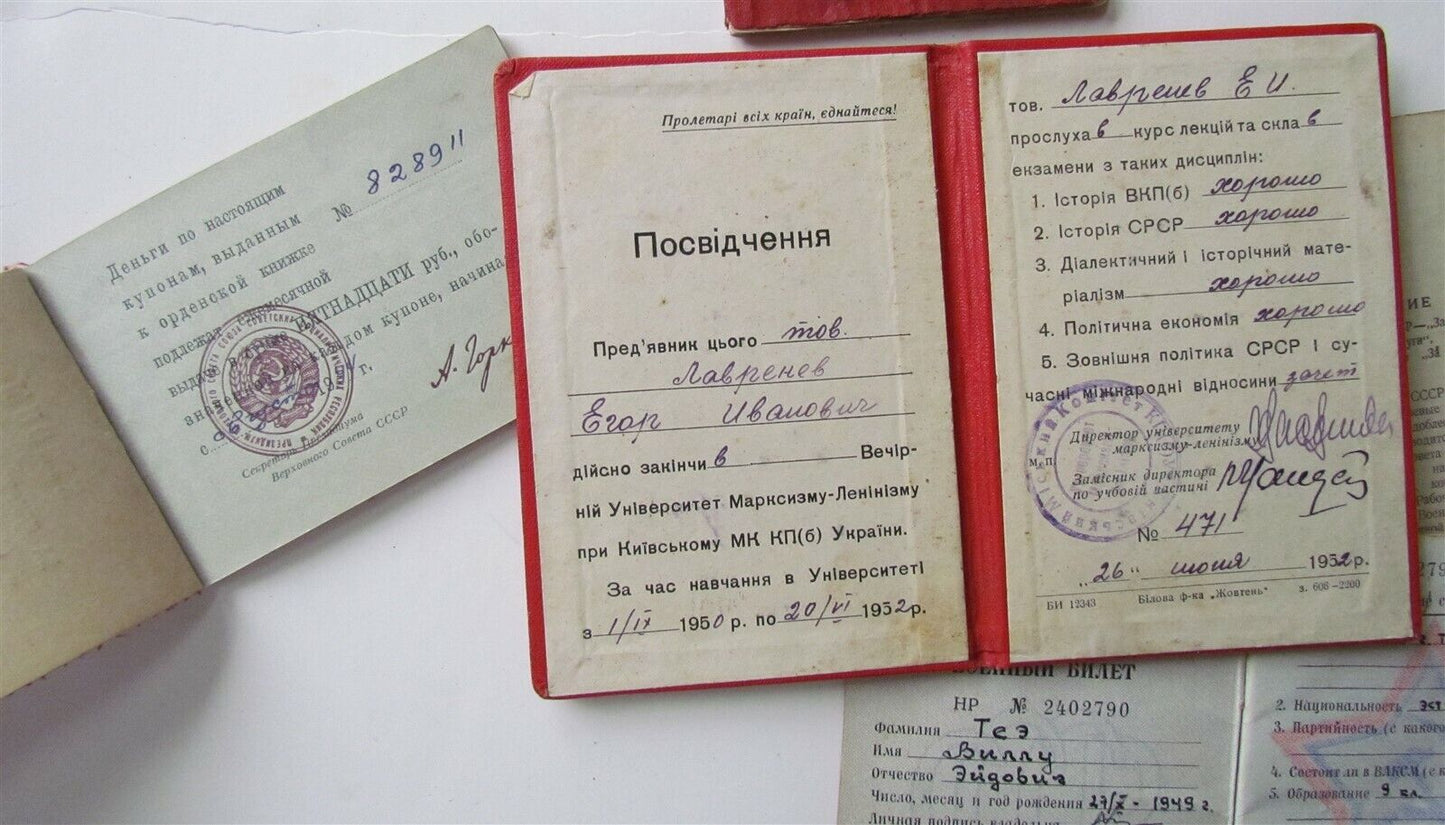 Деньги по настоящим
купонам, выданным
к орденской книжке № 828911
подлежат ежемесячной
выдаче в сумме ПЯТНАДЦАТИ руб., обо-
значенной на каждом купоне, начина
с г.
Секретарь Президиума
Верховного Совета СССР
А. Горк
Пролетарі всіх країн, єднайтеся!
Посвідчення
Пред'явник цього тов.
Лавренев
Егор Иванович
дійсно закінчив Вечір-
ній Університет Марксизму-Ленінізму
при Київському МК КП(б) України.
За час навчання в Університеті
з 1/IX 1950 р. по 20/VI 1952 р.
тов. Лавренев Е И.
прослухав курс лекцій та склав
екзамени з таких дисциплін:
1. Історія ВКП(б) хорошо
2. Історія СРСР хорошо
3. Діалектичний і історичний мате-
ріалізм хорошо
4. Політична економія хорошо
5. Зовнішня політика СРСР і су-
часні міжнародні відносини зачет
Директор університету
марксизму-ленінізму
М. П.
Замісник директора
по учбовій частині
№ 471
"26" июня 1952 р.
БИ 12343 Білова ф-ка „Жовтень" з. 606—2200
ВОЕННЫЙ БИЛЕТ
НР № 2402790
Фамилия Теэ
Имя Виллу
Отчество Эйдович
Число, месяц и год рождения 27/X - 1949 г.
Личная подпись владельца
2. Национальность эст
3. Партийность (с какого
4. Состоит ли в ВЛКСМ (с к
5. Образование 9 кл.